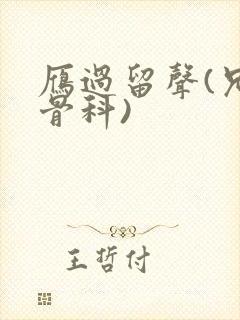 雁過留聲(兄
骨科)
王哲付